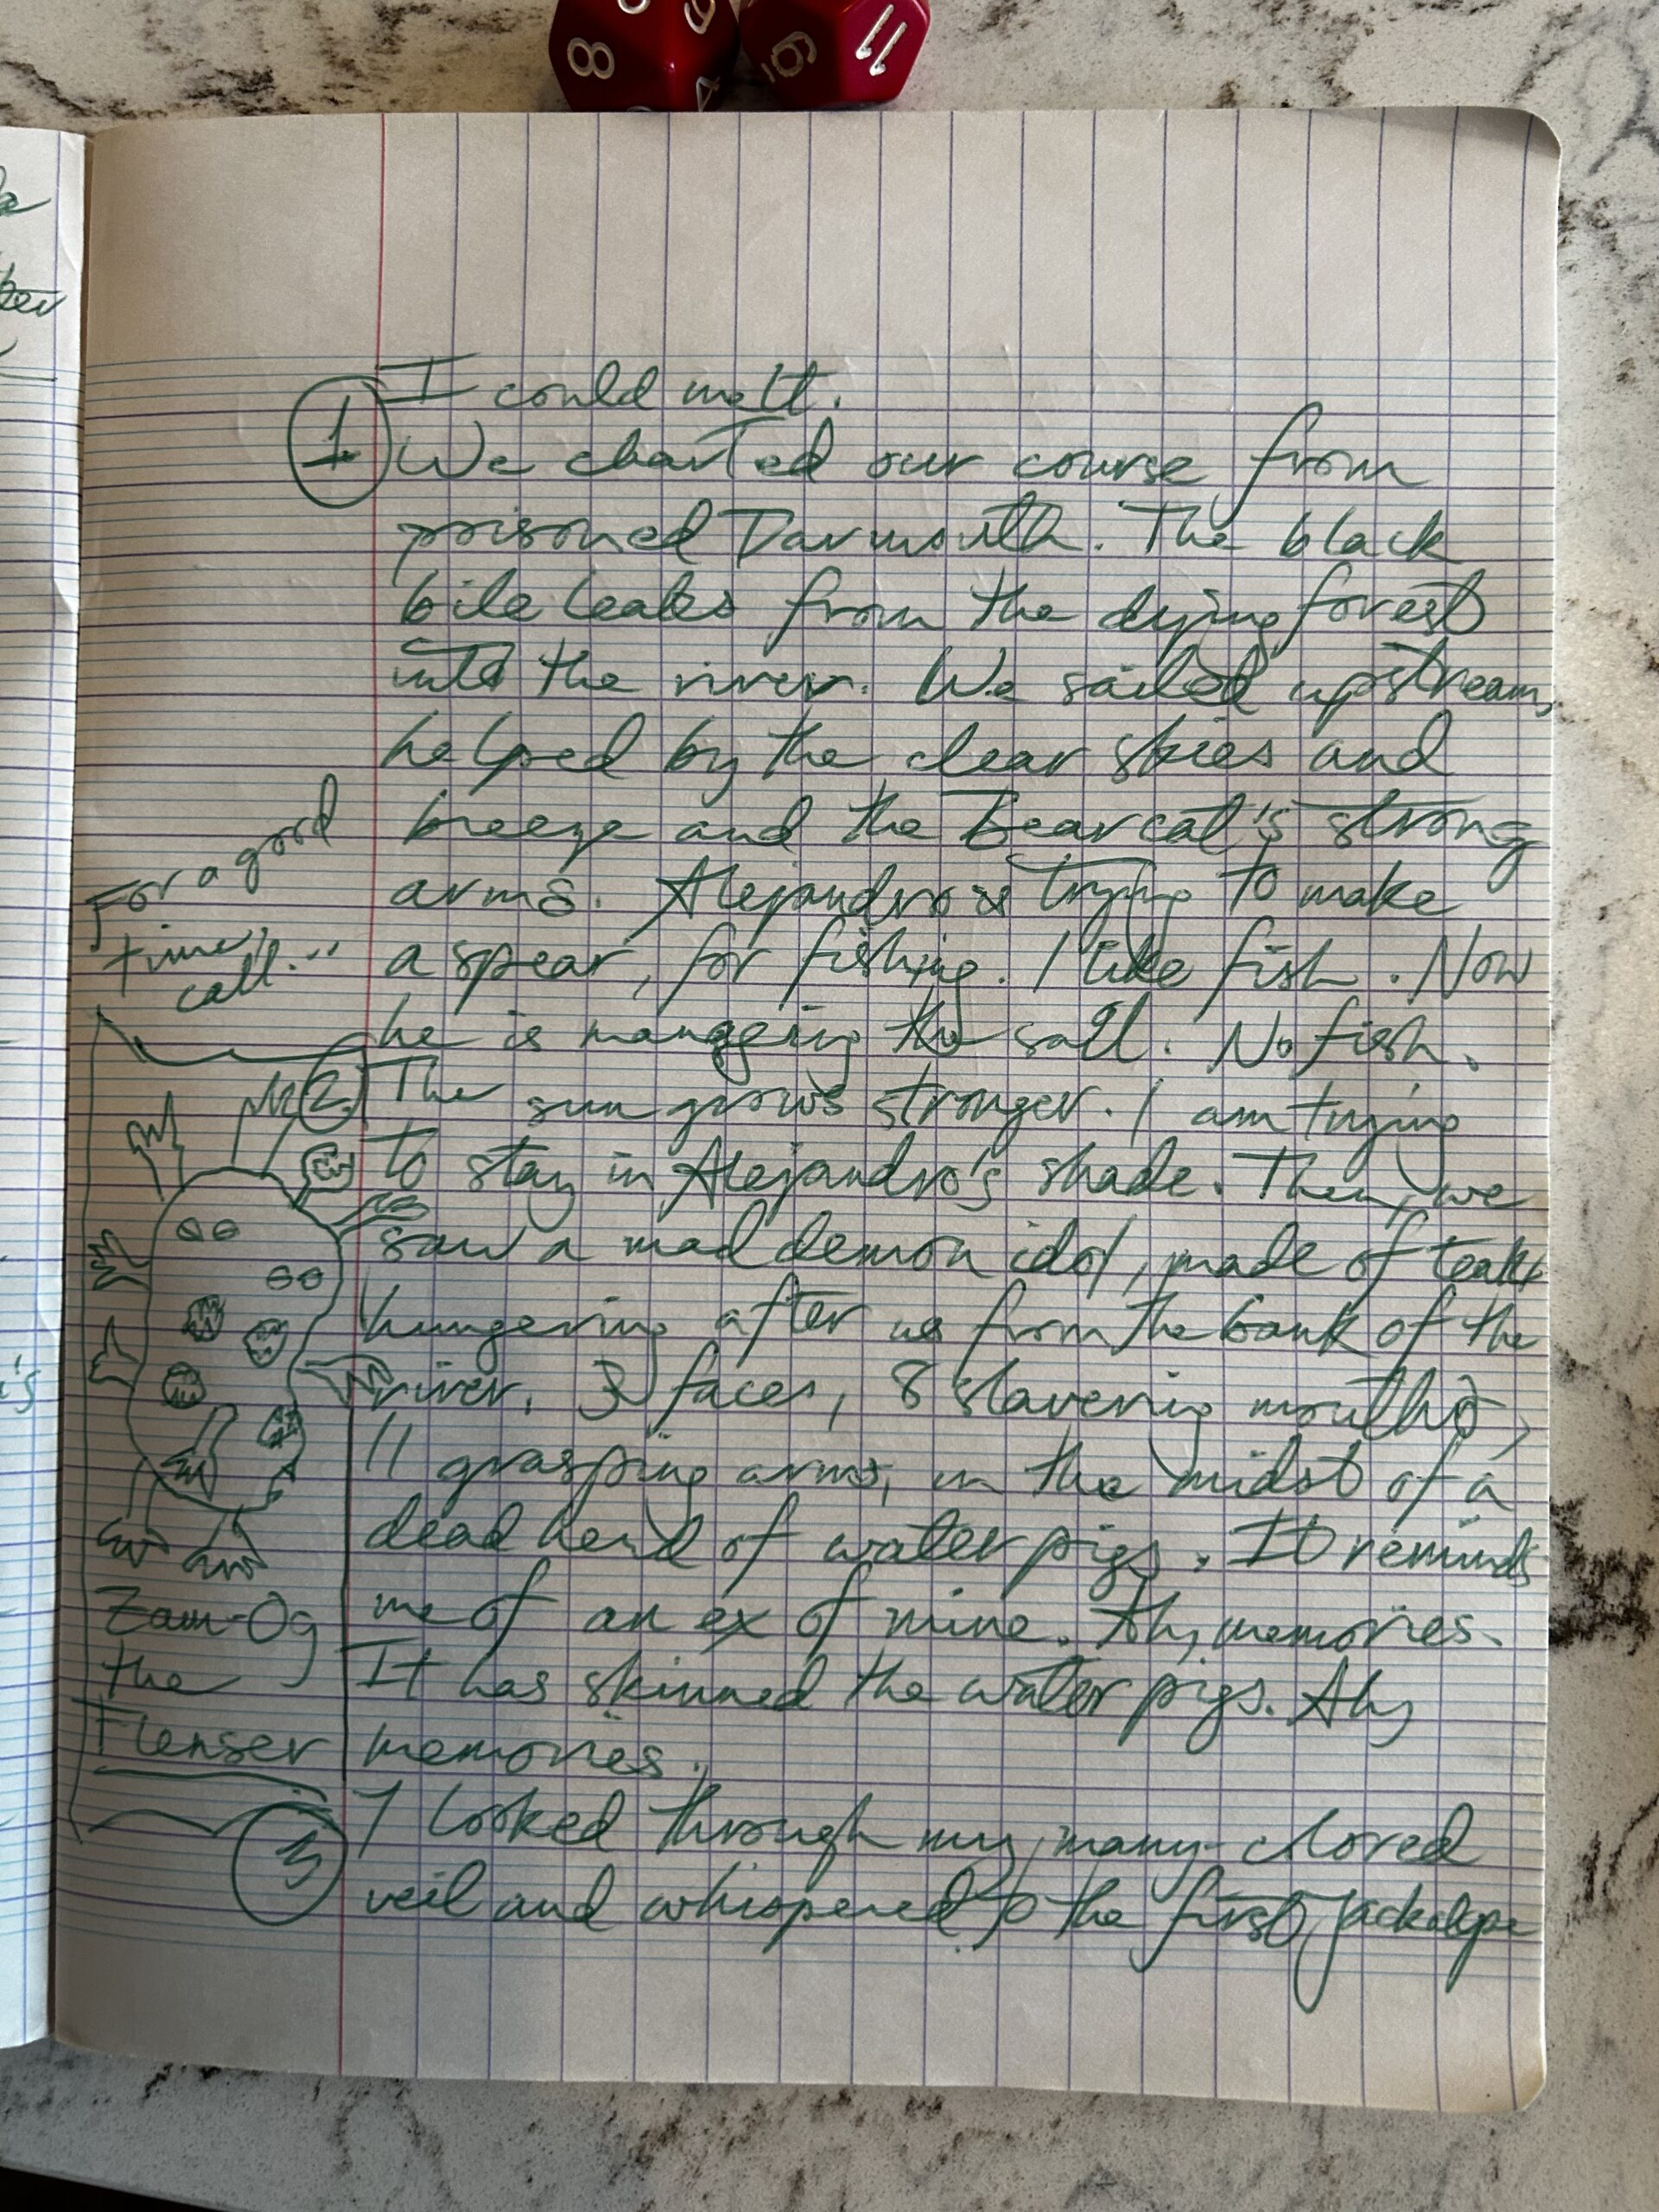 8
9
11
I could melt.
1. We charted our course from
poisoned Darmouth. The black
bile leaks from the dying forest
into the river. We sailed upstream,
helped by the clear skies and
breeze and the Bearcat's strong
arms. Alejandro is trying to make
a spear, for fishing. I like fish. Now
he is manageing the sail. No fish.
2. The sun grows stronger. I am trying
to stay in Alejandro's shade. Then, we
saw a mad demon idol, made of teak,
hungering after us from the bank of the
river. 3 faces, 8 slavering mouths,
11 grasping arms, in the midst of a
dead herd of water pigs. It reminds
me of an ex of mine. Ah, memories.
It has skinned the water pigs. Ah,
memories.
3 I looked through my many-colored
veil and whispered to the first Jackalope
For a good
time,
call...
Zam-Og
the
Flenser